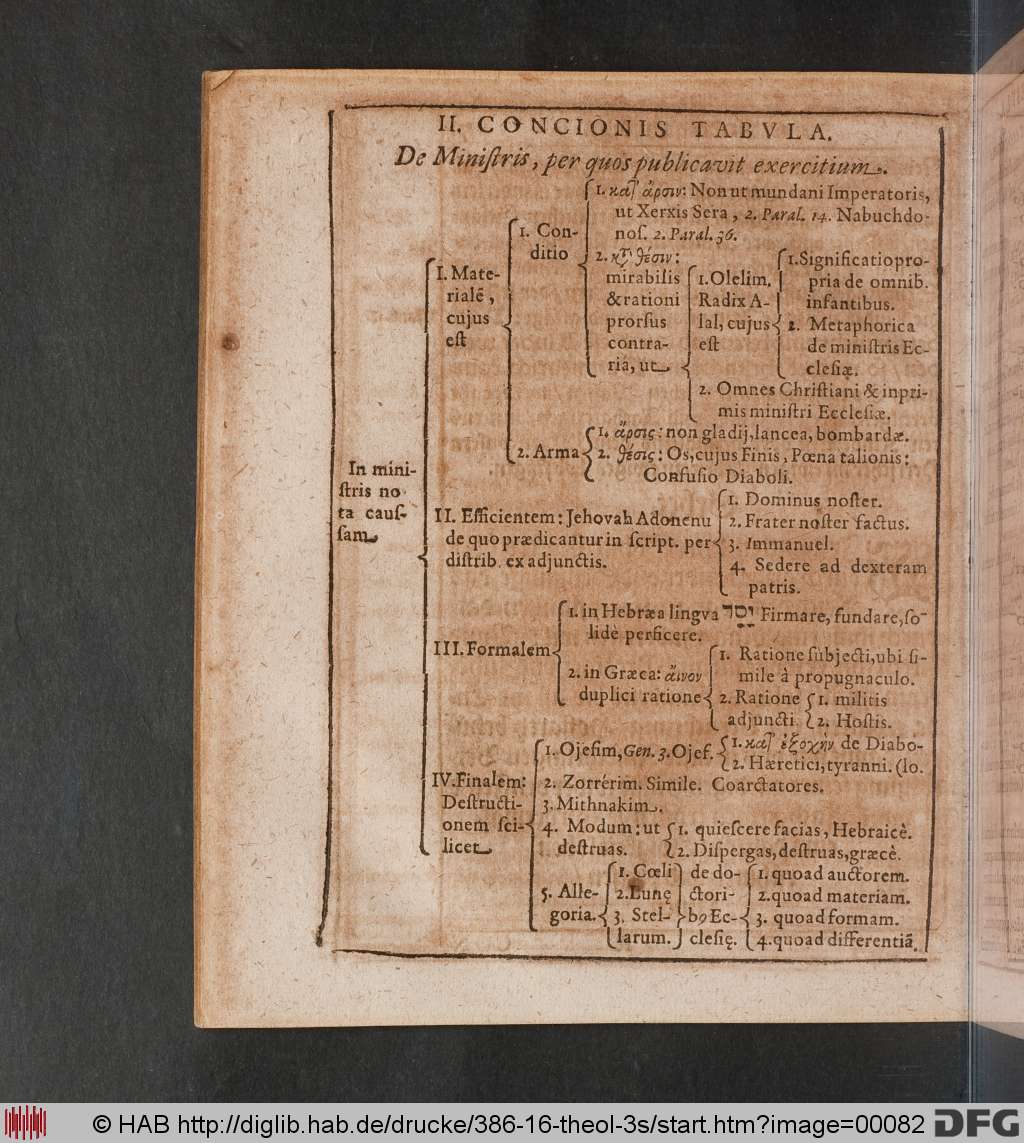 II. CONCIONIS TABVLA.
De Miniſtris, per quos publicavit exercitium.
In mini-
ſtris no
ta cauſ-
ſam
I. Mate-
rialē,
cujus
eſt
1. Con-
ditio
1. καT' ἄρσιν: Non ut mundani Imperatoris,
ut Xerxis Sera, 2. Paral. 14. Nabuchdo-
noſ. 2. Paral. 36.
2. κτ̀ θέσιν:
mirabilis
& rationi
prorſus
contra-
riá, ut
1. Olelim.
Radix A-
lal, cujus
eſt
1. Significatio pro-
pria de omnib.
infantibus.
2. Metaphorica
de miniſtris Ec-
cleſiæ.
2. Omnes Chriſtiani & inpri-
mis miniſtri Eccleſiæ.
2. Arma
1. ἄρσις: non gladij, lancea, bombardæ.
2. θέσις: Os, cujus Finis, Pœna talionis:
Confuſio Diaboli.
II. Efficientem: Jehovah Adonenu
de quo prædicantur in ſcript. per
diſtrib. ex adjunctis.
1. Dominus noſter.
2. Frater noſter factus.
3. Immanuel.
4. Sedere ad dexteram
patris.
III. Formalem
1. in Hebræa lingva יסד Firmare, fundare, ſo-
lidè perficere.
2. in Græca: ἄινον
duplici ratione
1. Ratione ſubjecti, ubi ſi-
mile à propugnaculo.
2. Ratione
adjuncti
1. militis
2. Hoſtis.
IV. Finalem:
Deſtructi-
onem ſci-
licet
1. Ojefim, Gen. 3. Ojef.
1. κατ' ἐξοχὴν de Diabo-
2. Hæretici, tyranni. (lo.
2. Zorrérim. Simile. Coarctatores.
3. Mithnakim.
4. Modum: ut
deſtruas.
1. quieſcere facias, Hebraicè.
2. Diſpergas, deſtruas, græcè.
5. Alle-
goria.
1. Cœli
2. Lunę
3. Stel-
larum.
de do-
ctori-
bꝰ Ec-
cleſię.
1. quoad auctorem.
2. quoad materiam.
3. quoad formam.
4. quoad differentiā.
© HAB http://diglib.hab.de/drucke/386-16-theol-3s/start.htm?image=00082
DFG